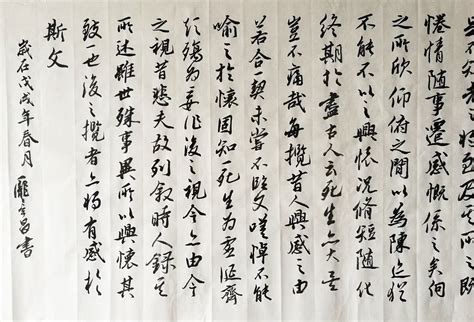 將至及其所之既
惓情随事遷感慨係之矣向
之所欣仰俯之間以為陳迹猶
不能不以之興懷况脩短随化
終期於盡古人云死生亦大矣
豈不痛哉每攬昔人興感之由
若合一契未嘗不臨文嗟悼不能
喻之於懷固知一死生為虚誕齊
彭殤為妄作後之視今亦由今
之視昔悲夫故列叙時人録其
所述雖世殊事異所以興懷其
致一也後之攬者亦將有感於
斯文
歲在戊戌年春月龐昌書